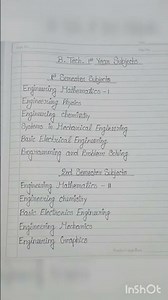 B. Tech. 1st Year Subjects
1st Semester Subjects
Engineering Mathematics - I
Engineering Physics
Engineering chemistry
Systems in Mechanical Engineering
Basic Electrical Engineering
Programming and Problem Solving
2nd Semester Subjects
Engineering Mathematics - II
Engineering chemistry
Basic Electronics Engineering
Engineering Mechanics
Engineering Graphics
InShOt